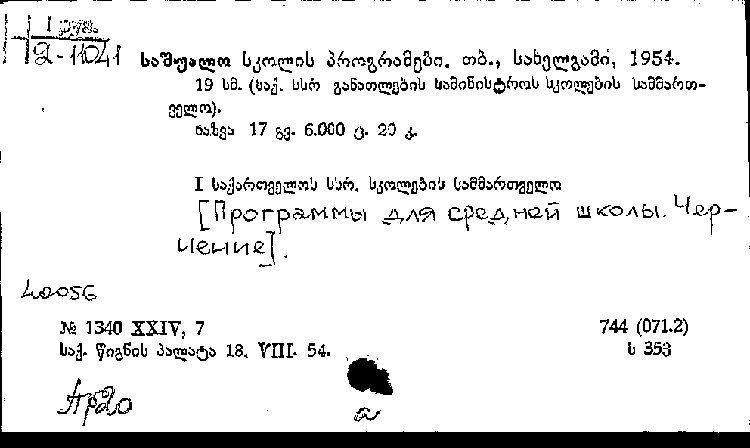 I
2-11041
საშუალო სკოლის პროგრამები. თბ., სახელგამი, 1954.
19 სმ. (საქ. სსრ განათლების სამინისტროს სკოლების სამმართ-
ველო).
ხაზვა 17 გვ. 6.000 ც. 20 კ.
I საქართველოს სსრ. სკოლების სამმართველო
[Программы для средней школы. Чер-
чение].
№ 1340 XXIV, 7
744 (071.2)
საქ. წიგნის პალატა 18. VIII. 54.
ს 353